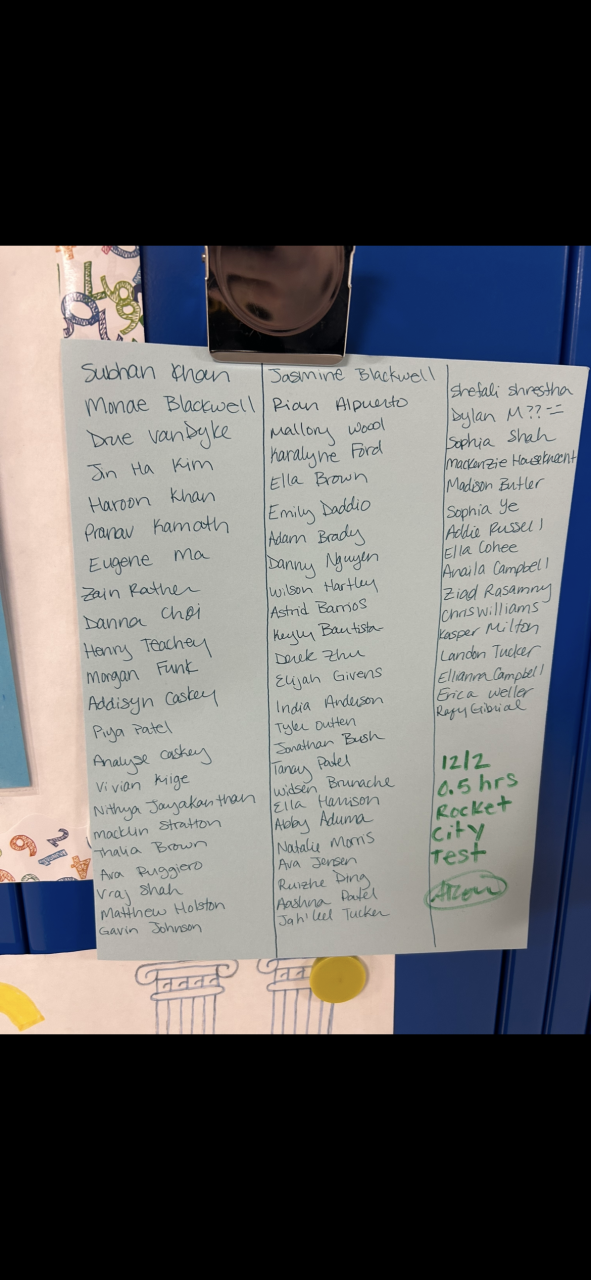 Subhan Khan
Monae Blackwell
Drue VanDyke
Jin Ha Kim
Haroon Khan
Pranav Kamath
Eugene Ma
Zain Rather
Danna Choi
Henry Teachey
Morgan Funk
Addisyn Caskey
Piya Patel
Analyse Caskey
Vivian Kige
Nithya Jayakanthan
Macklin Stratton
Thalia Brown
Ava Ruggiero
Vraj Shah
Matthew Holston
Gavin Johnson
Jasmine Blackwell
Rian Alpuerto
Mallory Wood
Karalyne Ford
Ella Brown
Emily Daddio
Adam Brady
Danny Nguyen
Wilson Hartley
Astrid Barrios
Keyly Bautista
Derek Zhu
Elijah Givens
India Anderson
Tyler Outten
Jonathan Bush
Tanay Patel
Widsen Brunache
Ella Harrison
Abby Aduma
Natalie Morris
Ava Jensen
Ruizhe Ding
Aashna Patel
Jah'leel Tucker
Shefali Shrestha
Dylan M??
Sophia Shah
Mackenzie Houseknecht
Madison Butler
Sophia Ye
Addie Russell
Ella Cohee
Anaila Campbell
Ziad Rasamny
Chris Williams
Kasper Milton
Landon Tucker
Ellianna Campbell
Erica Weller
12/2
0.5 hrs
Rocket
City
Test